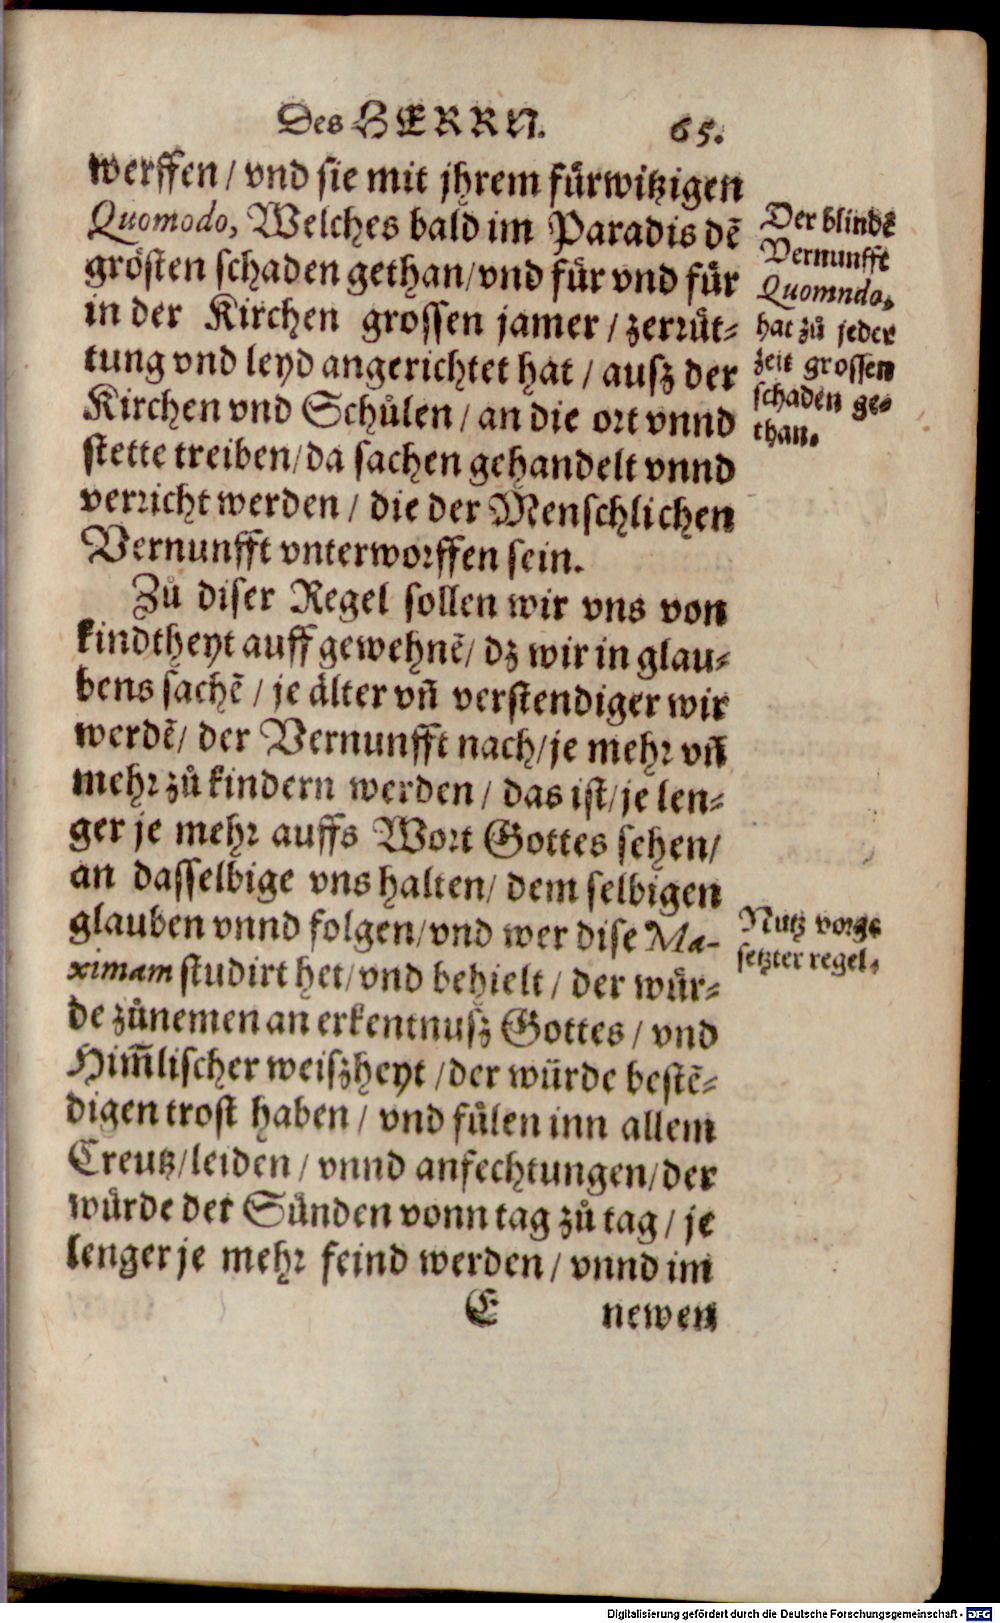 Des HERRN.
65.
werffen / vnd sie mit jhrem fürwitzigen
Quomodo, Welches bald im Paradis dẽ
grösten schaden gethan/vnd für vnd für
in der Kirchen grossen jamer / zerrüt-
tung vnd leyd angerichtet hat / ausz der
Kirchen vnd Schůlen / an die ort vnnd
stette treiben/da sachen gehandelt vnnd
verricht werden / die der Menschlichen
Vernunfft vnterworffen sein.
Der blindẽ
Vernunfft
Quomndo,
hat zů jeder
zeit grossen
schaden ge-
than.
Zů diser Regel sollen wir vns von
kindtheyt auff gewehnẽ/ dz wir in glau-
bens sachẽ / je älter vñ verstendiger wir
werdẽ/ der Vernunfft nach/je mehr vñ
mehr zů kindern werden / das ist/je len-
ger je mehr auffs Wort Gottes sehen/
an dasselbige vns halten/ dem selbigen
glauben vnnd folgen/vnd wer dise Ma-
ximam studirt het/vnd behielt / der wür-
de zůnemen an erkentnusz Gottes / vnd
Him̃lischer weiszheyt /der würde bestẽ-
digen trost haben / vnd fülen inn allem
Creutz/leiden / vnnd anfechtungen/der
würde der Sünden vonn tag zů tag / je
lenger je mehr feind werden / vnnd im
Nutz vorge
setzter regel.
E
newen
Digitalisierung gefördert durch die Deutsche Forschungsgemeinschaft - DFG